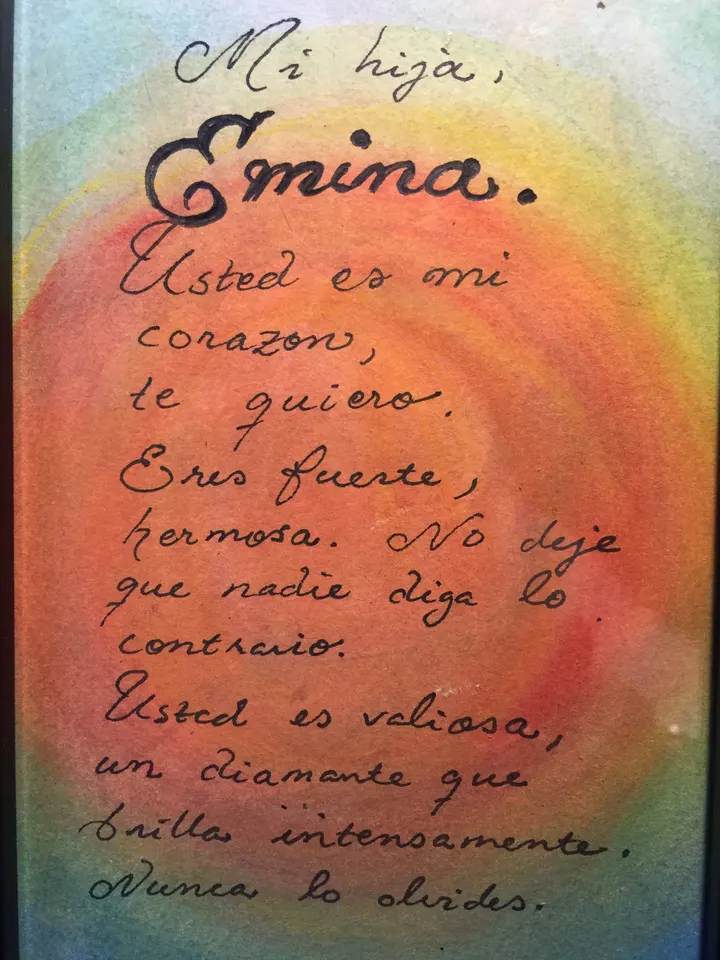 Mi hija,
Emina.
Usted es mi
corazon,
te quiero.
Eres fuerte,
hermosa. No deje
que nadie diga lo
contrario.
Usted es valiosa,
un diamante que
brilla intensamente.
Nunca lo olvides.